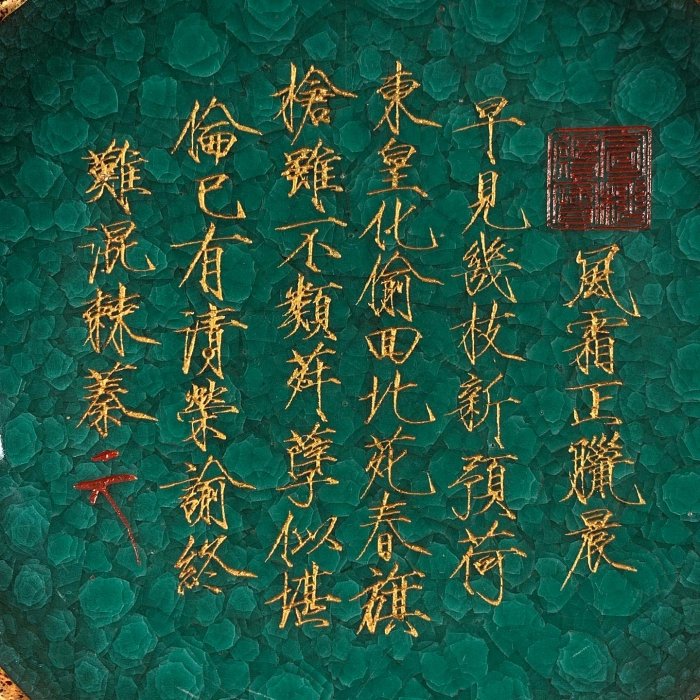 風霜正臘晨
早見幾枝新預荷
東皇化偷囬北苑春旗
槍雖不類荈孽似堪
倫已有清榮諭終
難混棘蓁